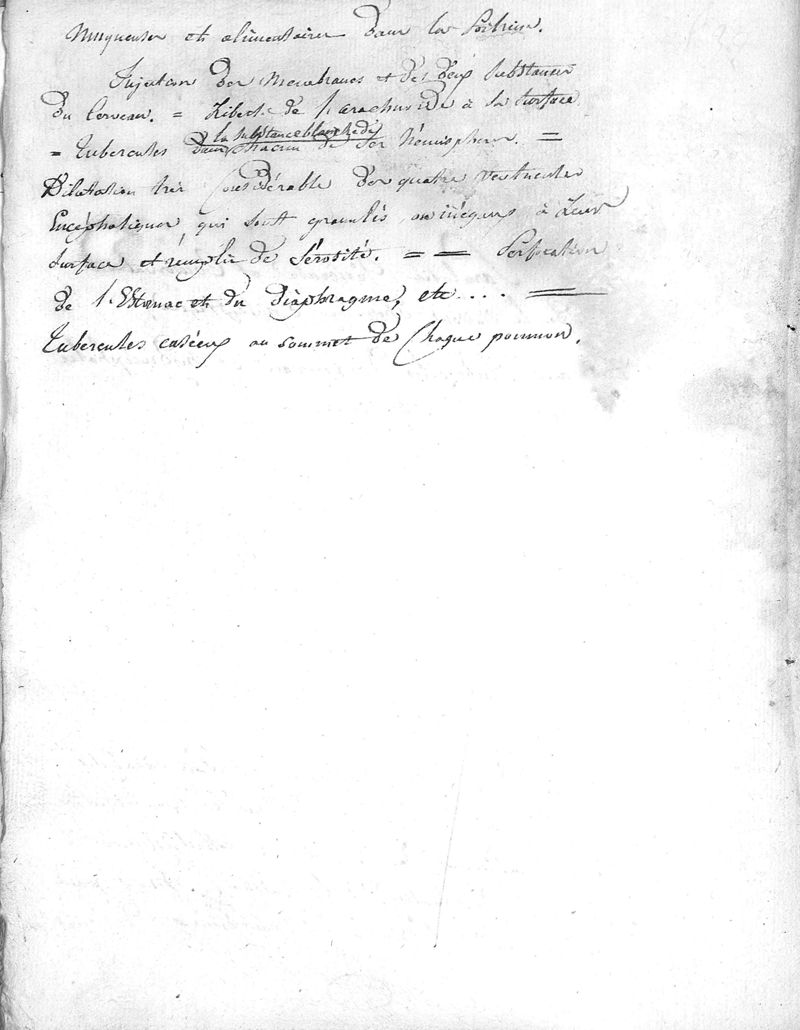 muqueuses et alimentaires dans la Poitrine.
Injection des membranes et des deux substances
du Cerveau. = de l'arachnoïde à sa surface
= Tubercules dans la substance blanche de chacun de ses hémispheres. =
Dilatation très Considérable des quatre ventricules
Encéphaliques, qui sont granulés, ou inégaux à Leur
surface et remplis de sérosité. = = Perforation
de l'Estomac et du diaphragme, etc.... =
Tubercules caséeux au sommet de Chaque poumon.